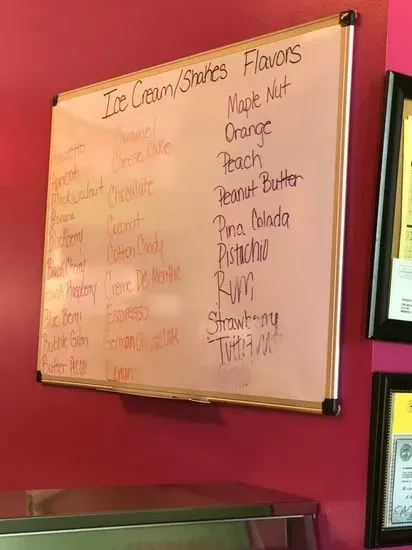 Ice Cream/Shakes Flavors
Amaretto
Apricot
Blackwalnut
Banana
Blackberry
Black Cherry
Black Raspberry
Blue Berry
Bubble Gum
Butter Pecan
Caramel
Cheese Cake
Chocolate
Coconut
Cotton Candy
Creme De Menthe
Espresso
German Chocolate Cake
Lemon
Maple Nut
Orange
Peach
Peanut Butter
Pina Colada
Pistachio
Rum
Strawberry
Tutti